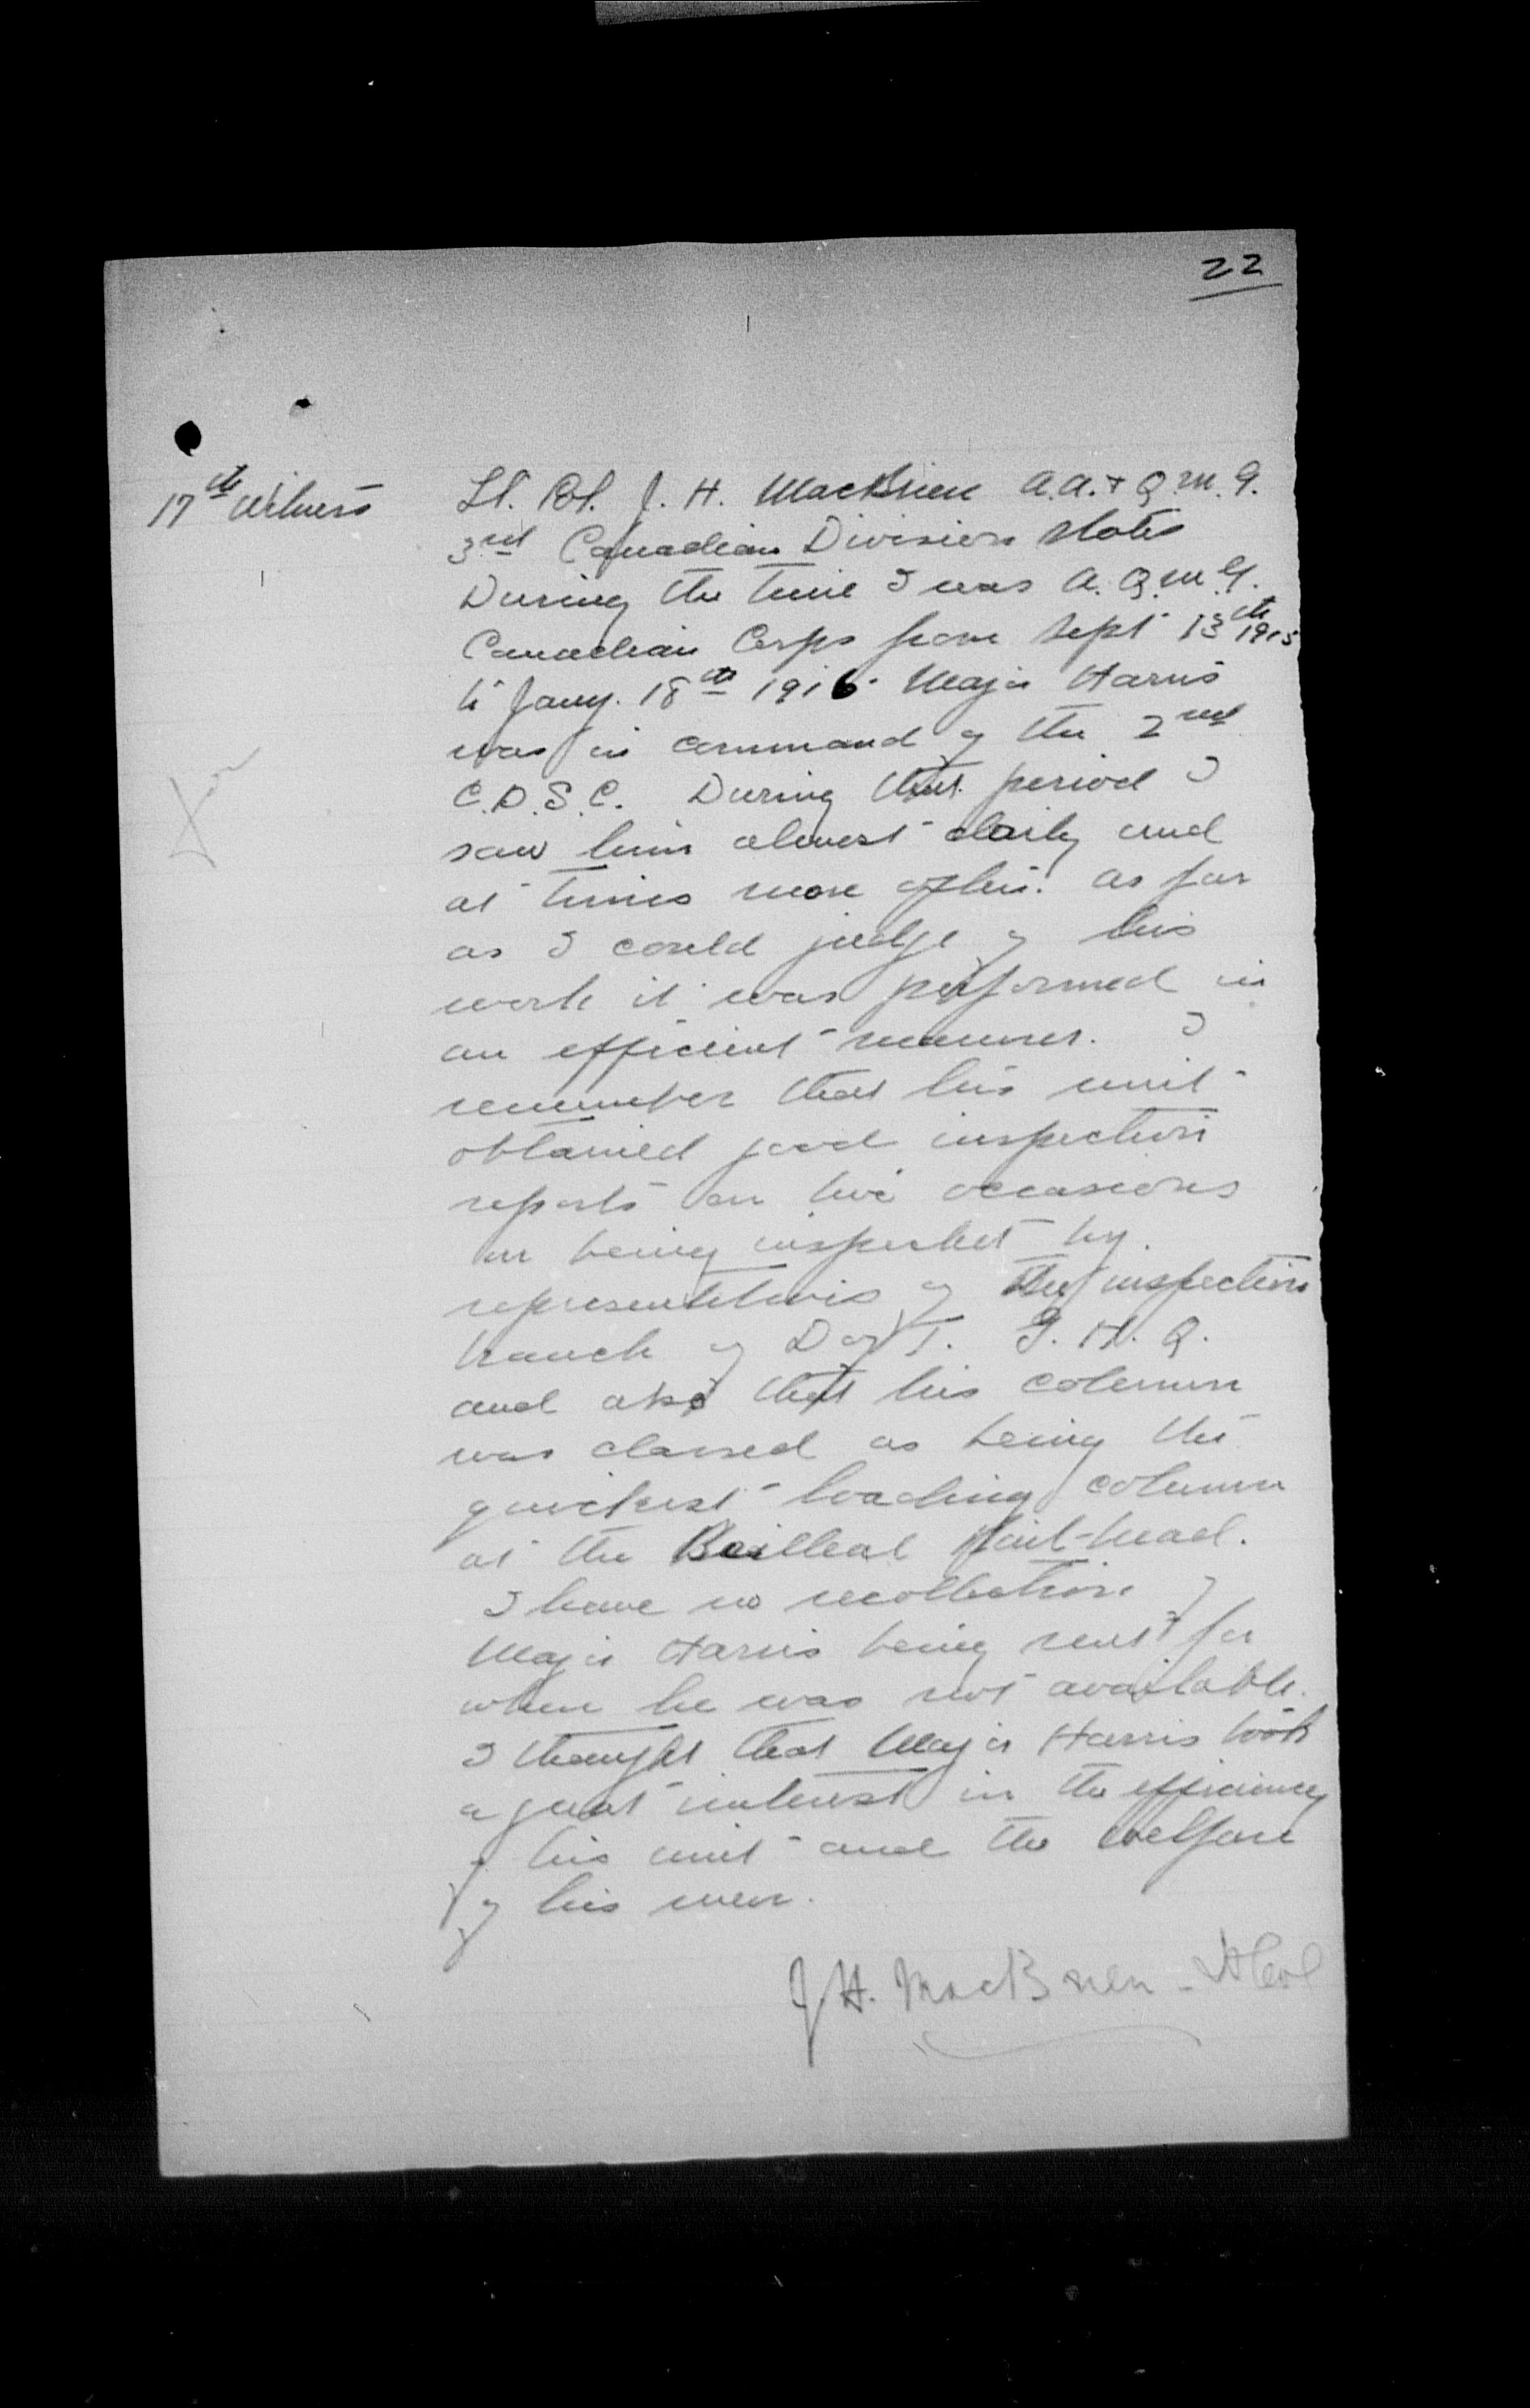 22
17th Witness
Lt. Col. J. H. MacBrien A.A. + Q.M.G.
3rd Canadian Division states
During the time I was A.Q.M.G.
Canadian Corps from Sept 13th 1915
to Jany. 18th 1916 Major Harris
was in command of the 2nd
C.D.S.C. During that period I
saw him almost daily and
at times more often. As far
as I could judge of his
work it was performed in
an efficient manner. I
remember that his unit
obtained good inspection
reports on two occasions
on being inspected by
representatives of the inspection
branch of D of T. G.H.Q.
and also that his column
was classed as being the
quickest loading column
at the Bailleal Rail-head.
I have no recollection of
Major Harris being sent for
when he was not available.
I thought that Major Harris took
a great interest in the efficiency
of his unit and the welfare
of his men.
J.H. MacBrien - Lt Col